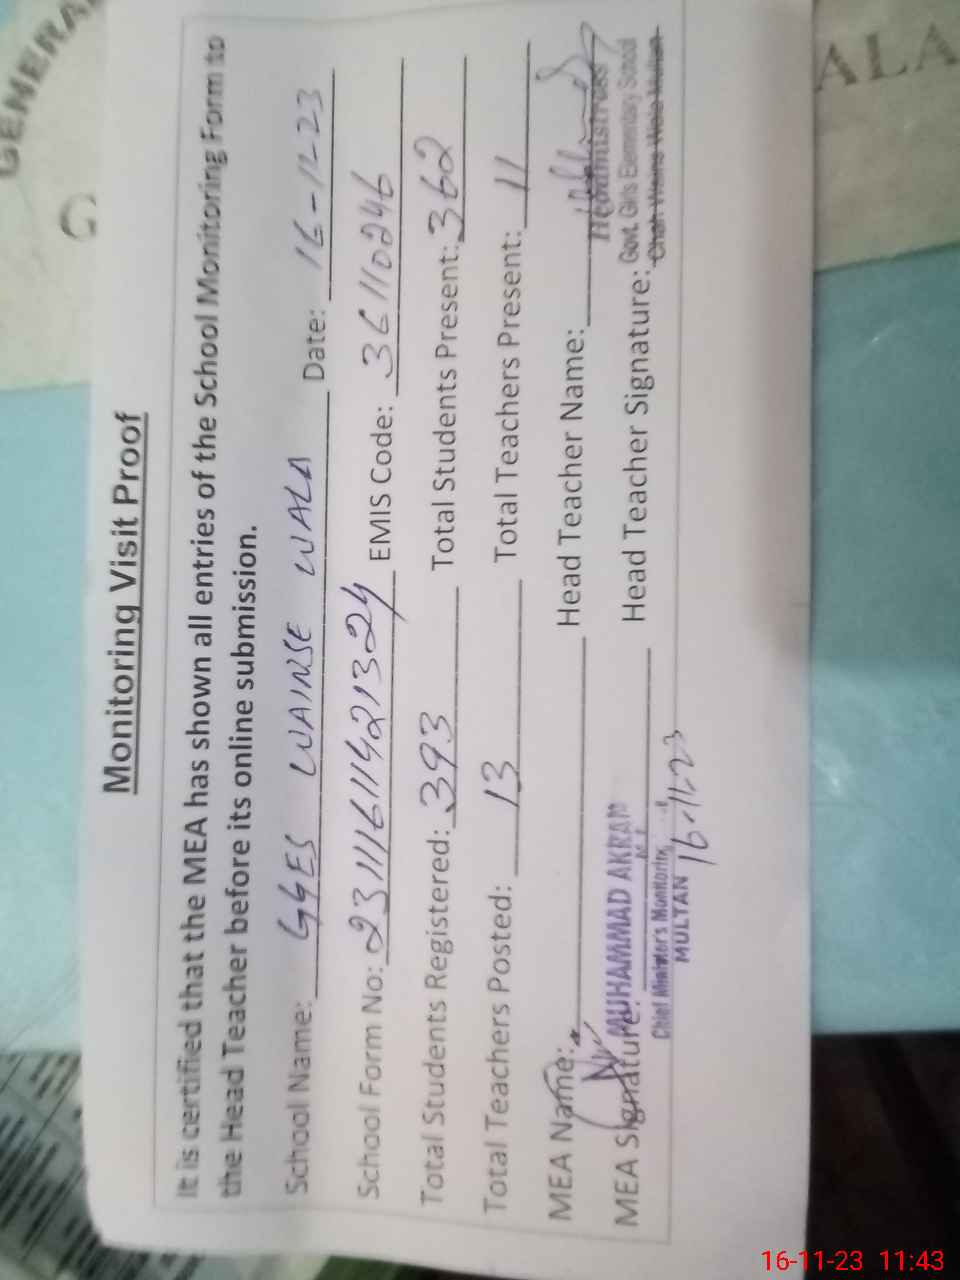 GENERAL
ALA
Monitoring Visit Proof
It is certified that the MEA has shown all entries of the School Monitoring Form to
the Head Teacher before its online submission.
School Name: GGES WAINSE WALA Date: 16-11-23
School Form No: EMIS Code: 36110246
Total Students Registered: 393 Total Students Present: 362
Total Teachers Posted: 13 Total Teachers Present: 11
MEA Name: Head Teacher Name:
Headmistress
MEA Signature: MUHAMMAD AKRAM Head Teacher Signature: Govt. Girls Elementary School
Chief Minister's Monitoring
MULTAN 16-11-23
16-11-23 11:43